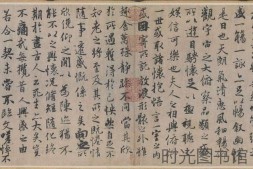 盛一觴一詠亦足以暢叙幽情
是日也天朗氣清惠風和暢仰
觀宇宙之大俯察品類之盛
所以遊目騁懷足以極視聽之
娛信可樂也夫人之相與俯仰
一世或取諸懷抱悟言一室之內
或因寄所託放浪形骸之外雖
趣舍萬殊静躁不同當其欣
於所遇暫得於己快然自足不
知老之將至及其所之既惓情
隨事遷感慨係之矣向之所
欣俛仰之間以為陳迹猶不
能不以之興懷況脩短隨化終
期於盡古人云死生亦大矣豈
不痛哉每攬昔人興感之由
若合一契未嘗不臨文嗟悼不
时光图书馆